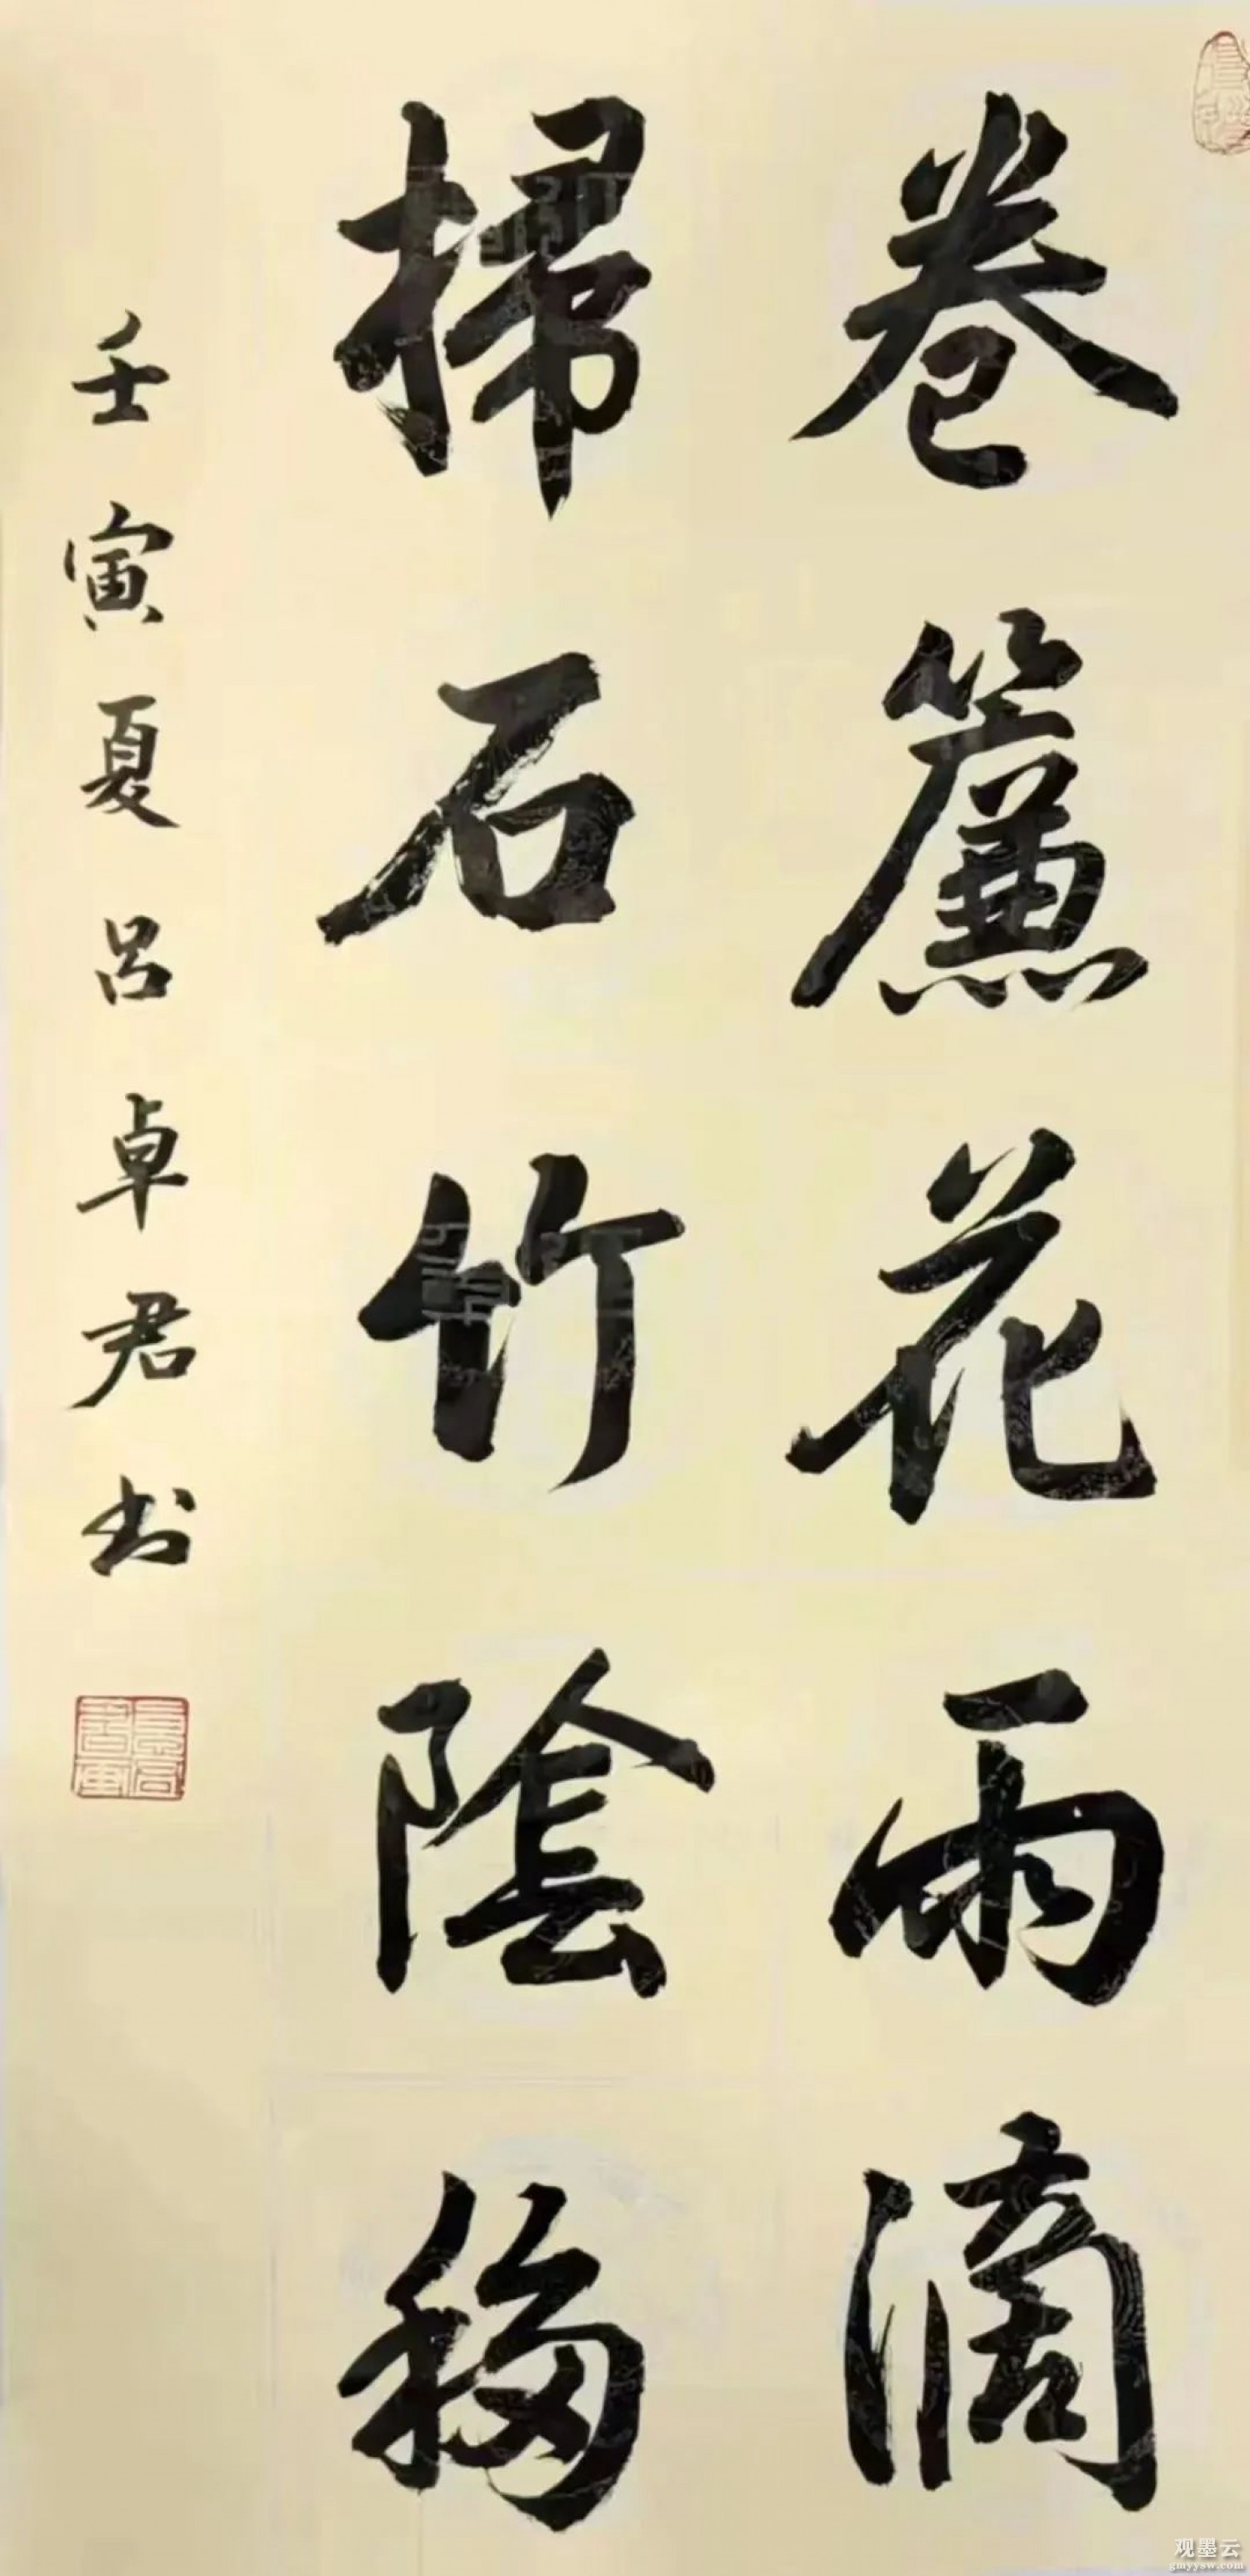 卷簾花雨滴
掃石竹陰移
壬寅夏吕卓君书
观墨云
gmyysw.com